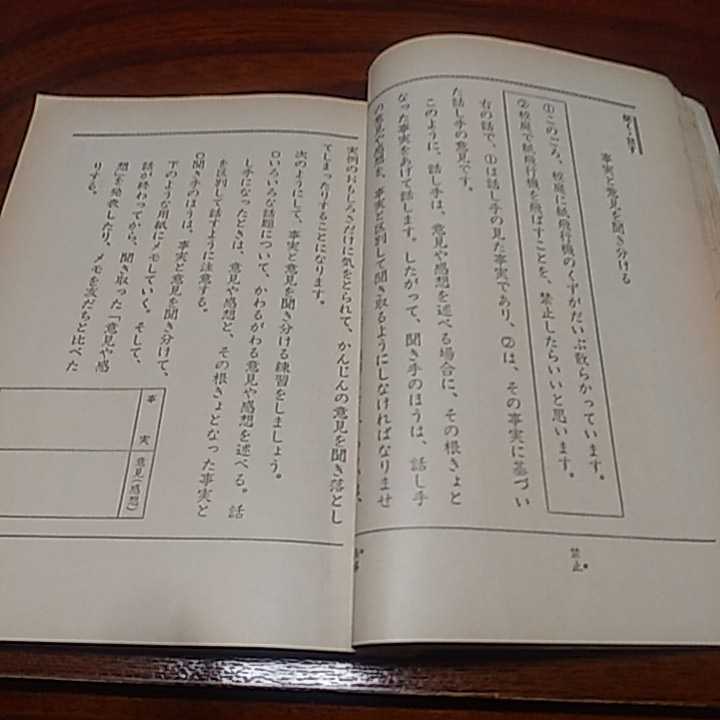 聞く・話す
事実と意見を聞き分ける
①このごろ、校庭に紙飛行機のくずがだいぶ散らかっています。
②校庭で紙飛行機を飛ばすことを、禁止したらいいと思います。
右の話で、①は話し手の見た事実であり、②は、その事実に基づい
た話し手の意見です。
このように、話し手は、意見や感想を述べる場合に、その根きょと
なった事実をあげて話します。したがって、聞き手のほうは、話し手
の意見や感想を、事実と区別して聞き取るようにしなければなりませ
禁止
実例のおもしろさだけに気をとられて、かんじんの意見を聞き落とし
てしまったりすることになります。
次のようにして、事実と意見を聞き分ける練習をしましょう。
○いろいろな話題について、かわるがわる意見や感想を述べる。話
し手になったときは、意見や感想と、その根きょとなった事実と
を区別して話すように注意する。
○聞き手のほうは、事実と意見を聞き分けて、
下のような用紙にメモしていく。そして、
話が終わってから、聞き取った「意見や感
想」を発表したり、メモを友だちと比べた
りする。
事実
意見(感想)